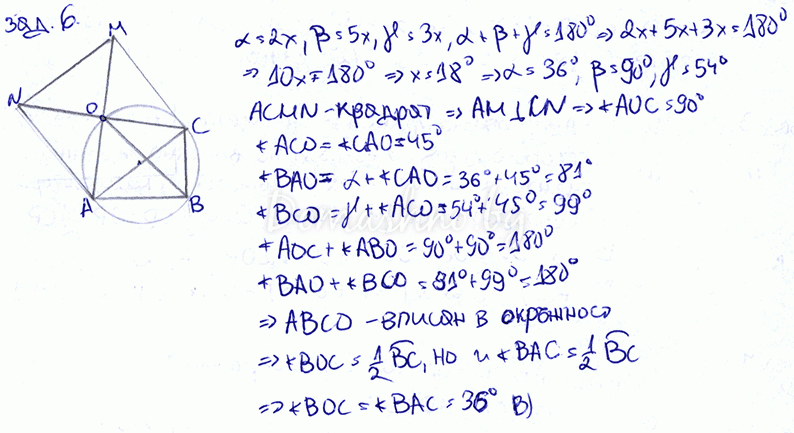 зад. 6.
M
N
O
C
A
B
α=2x, β=5x, γ=3x, α+β+γ=180° ⇒ 2x+5x+3x=180°
⇒ 10x=180° ⇒ x=18° ⇒ α=36°, β=90°, γ=54°
ACMN-квадрат ⇒ AM⊥CN ⇒ ∢AOC=90°
∢ACO=∢CAO=45°
∢BAO= α+∢CAO=36°+45°=81°
∢BCO=γ+∢ACO=54°+45°=99°
∢AOC+∢ABO=90°+90°=180°
∢BAO+∢BCO=81°+99°=180°
⇒ ABCO-вписан в окръжност
⇒ ∢BOC=1/2 BC, но и ∢BAC=1/2 BC
⇒ ∢BOC=∢BAC=36° В)